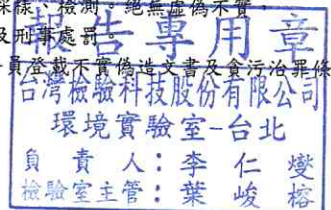 採樣、檢測。絕無虛偽不實,
及刑事處罰。
員登載不實偽造文書及貪污治罪條
報告專用章
台灣檢驗科技股份有限公司
環境實驗室-台北
負責人:李仁燮
檢驗室主管:葉峻榕